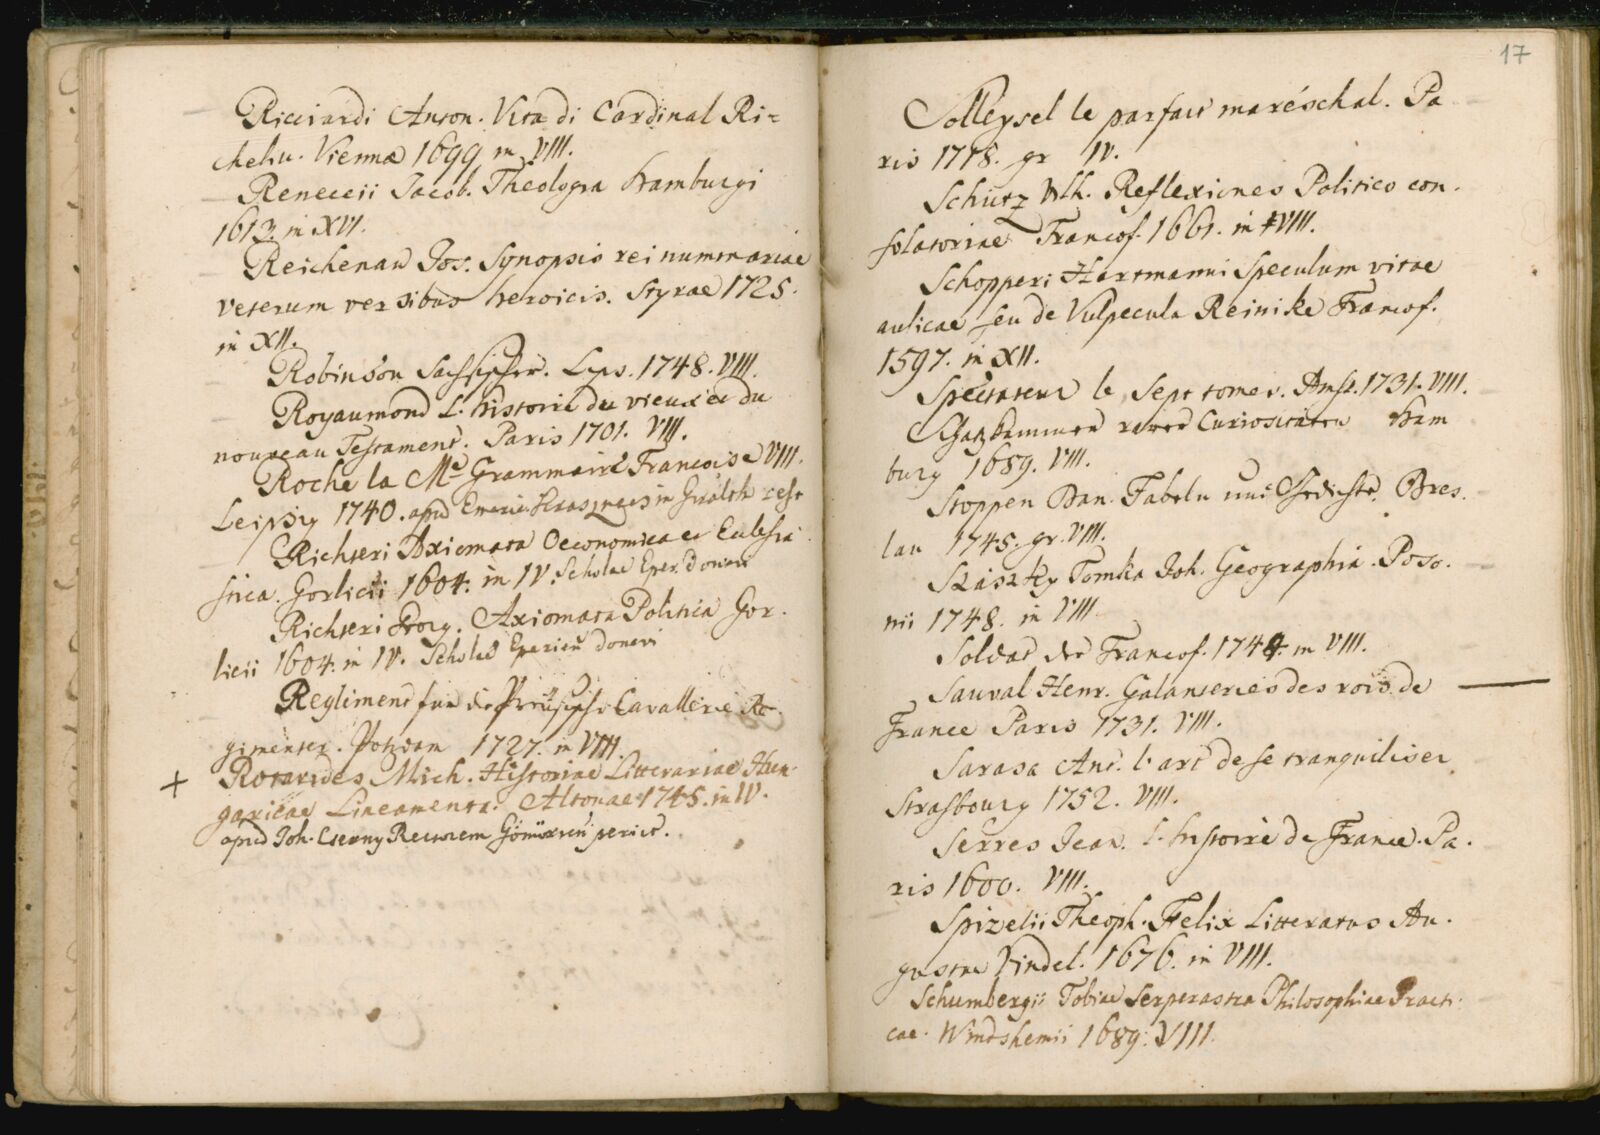 Ricciardi Anton. Vita di Cardinal Ri=
cheliu. Viennae 1699 in VIII.
Reneccii Jacob. Theologia Hamburgi
1613. in XVI.
Reichenau Jos. Synopsis rei nummariae
veterum versibus heroicis. Styrae 1725.
in XII.
Robinson Sachsischer. Lips. 1748. VIII.
Royaumond L. historie du vieux et du
nouveau Testament. Paris 1701. VIII.
Roche la Mr Grammaire Francoise VIII.
Leipzig 1740. apud in
Richteri Axiomata Oeconomica et Eccles̄ia
stica. Gorlicii 1604. in IV. Scholae Eper. donavi
Richteri Georg. Axiomata Politica Gor.
licii 1604. in IV. Scholae Eperien donavi
Reglement fur die Preüsische Cavallerie Re.
gimenter. Potsdam 1727. in VIII.
+ Rotarides Mich. Historiae Litterariae Hun-
garicae Lineamenta. Altonae 1745. in IV.
apud Joh. Cserny Rectorem periit.
17
Solleysel le parfait maréschal. Pa
ris 1718. gr IV.
Schütz Wlh. Reflexiones Politico con.
solatoriae Francof. 1661. in VIII.
Schopperi Hartmanni Speculum vitae
aulicae seu de Vulpecula Reinike Francof.
1597. in XII.
Spectateur le Sept tomes. Amst. 1731. VIII.
Schatzkammer rarer Curiositäten Ham
burg 1689. VIII.
Stoppen Dan. Fabeln und Gedichte. Bres.
lau 1745. gr. VIII.
Szászky Tomka Joh. Geographia. Poso.
nii 1748. in VIII
Soldat der Francof. 1744. in VIII.
Sauval Henr. Galanteries des rois de
France Paris 1731. VIII.
Sarasa Ant. l'art de se tranquiliser
Strasbourg 1752. VIII.
Serres Jean. l'histoire de France. Pa.
ris 1600. VIII.
Spizelii Theoph. Felix Litteratus Au.
gustae Vindel. 1676. in VIII.
Schumbergii Tobiae Serperastra Philosophiae Practi.
cae. Windshemii 1689. VIII.